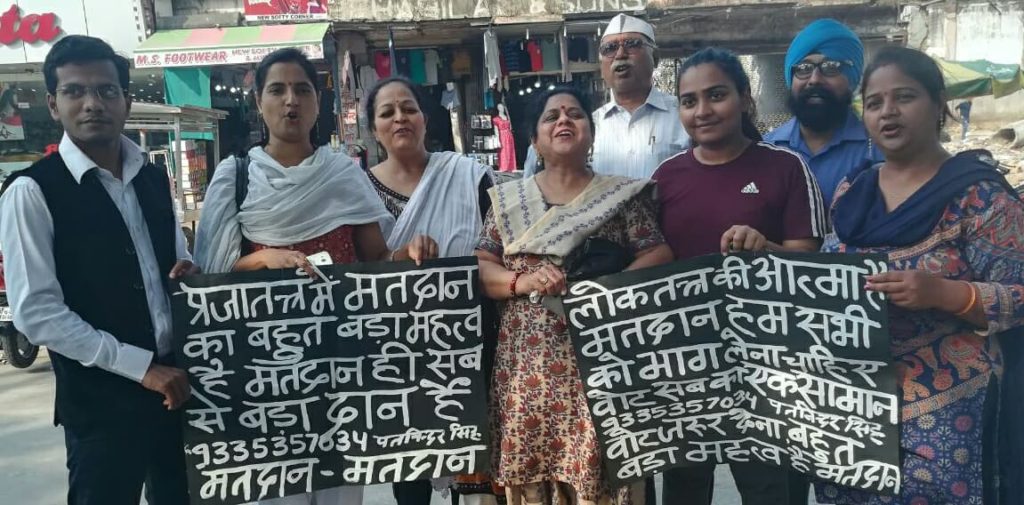 ta
M.S. FOOTWEAR
NEW SOFTY CORNER
NEW SOFTY CORNER
प्रजातन्त्र में मतदान
का बहुत बड़ा महत्व
है मतदान ही सब
से बड़ा दान है
9335357034 पतविन्दर सिंह
मतदान - मतदान
लोकतन्त्र की आत्मा है
मतदान हम सभी
को भाग लेना चाहिए
वोट सब का एक सामान
9335357034 पतविन्दर सिंह
वोट जरूर देना बहुत
बड़ा महत्व है मतदान
adidas